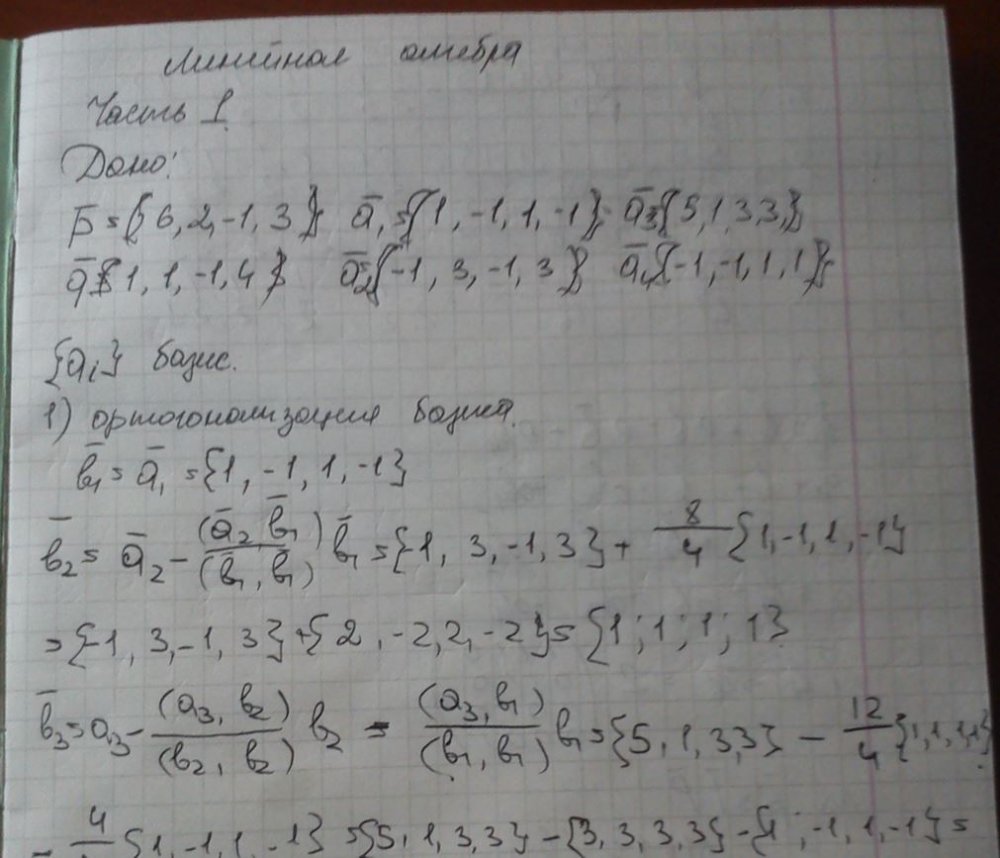 Линейная алгебра
Часть I.
Дано:
p̄={6,2,-1,3} ā₁={1,-1,1,-1} ā₃{5,1,3,3}
ā{1,1,-1,4} ā₂{-1,3,-1,3} ā₄{-1,-1,1,1}
{aᵢ} базис.
1) ортогонализация базиса.
b̄₁=ā₁={1,-1,1,-1}
b̄₂=ā₂-(ā₂ b̄₁)/(b̄₁,b̄₁) b̄₁={1,3,-1,3}+8/4{1,-1,1,-1}
={-1,3,-1,3}+{2,-2,2,-2}={1;1;1;1}
b̄₃=a₃-(a₃,b₂)/(b₂,b₂) b₂ = (a₃,b₁)/(b₁,b₁) b₁={5,1,3,3}-12/4{1,1,1,1}
-4/4{1,-1,1,-1}={5,1,3,3}-{3,3,3,3}-{1;-1,1,-1}=